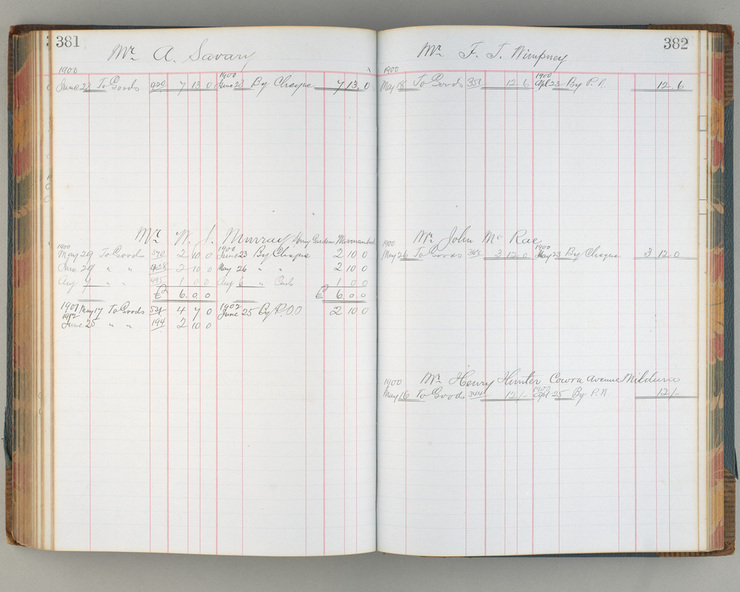 381
Mr. A. Savary
1900
June 23 To Goods 7 13 0 1900 June 23 By Cheque 7 13 0
Mr. W. J. Murray
1900 1900
May 29 To Goods 2 10 0 June 23 By Cheque 2 10 0
June 29 " " 2 10 0 May 26 " " 2 10 0
Aug " " 1 0 0 Aug 6 " 1 0 0
£ 6 0 0 £ 6 0 0
1901 May 17 To Goods 4 7 0 1902 June 25 By P.O.O 2 10 0
1902
June 25 " " 194 2 10 0
382
Mr. F. J. Wimpney
1900
May 18 To Goods 12 6 1900 Apl 23 By P. 12 6
Mr. John McRae
1900
May 26 To Goods 3 12 0 1900 May 23 By Cheque 3 12 0
1900 Mr. Henry Hunter Cowra Avenue Mildura
May 16 To Goods 12/- Sept 25 By P.N. 12/-